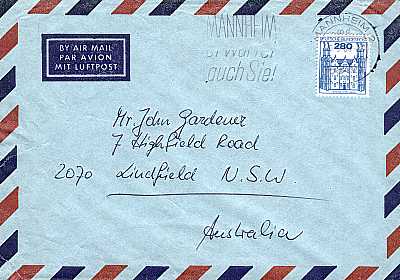 MANNHEIM
erwartet
auch Sie!
MANNHEIM
280
BY AIR MAIL
PAR AVION
MIT LUFTPOST
Mr. John Gardener
7 Highfield Road
2070 Lindfield N.S.W.
Australia